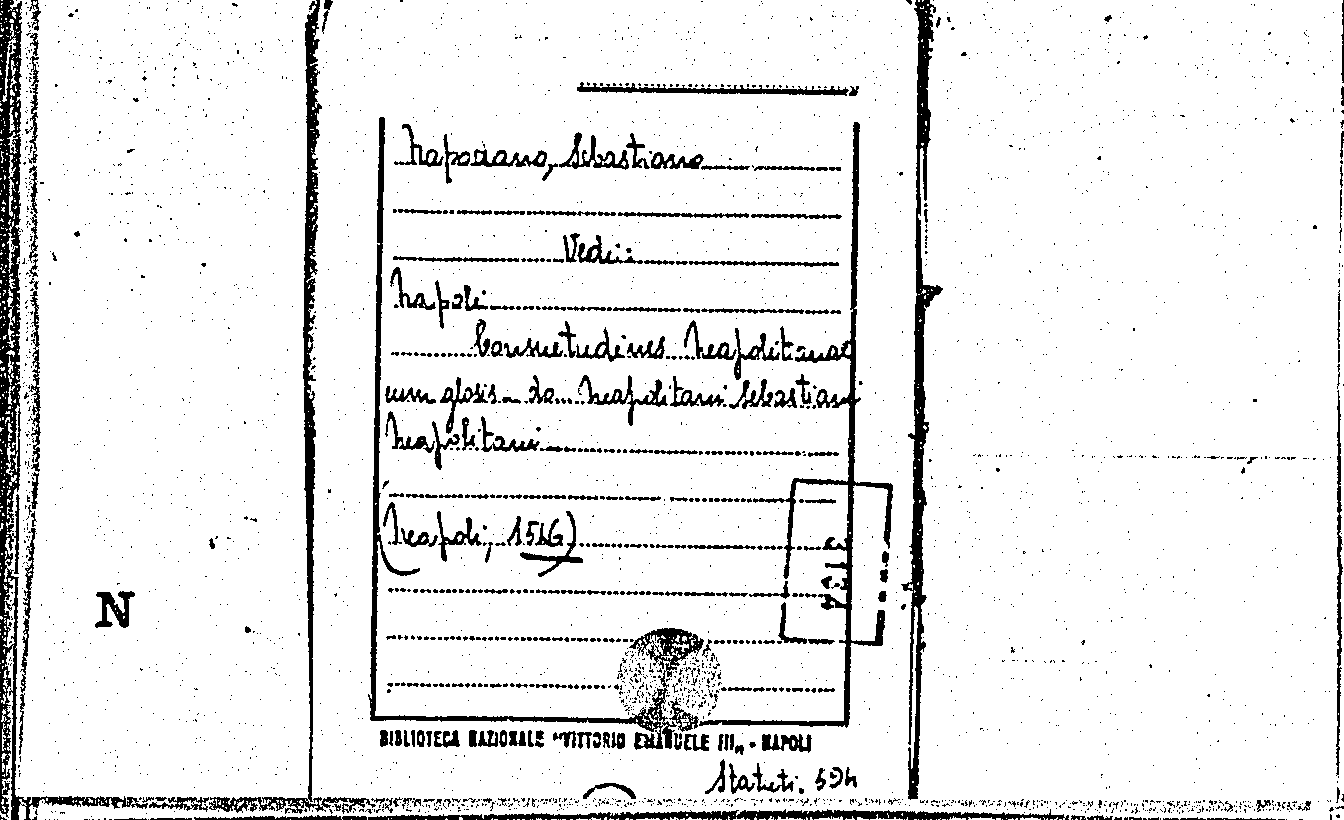 Napodano, Sebastiano
Vedi:
Napoli
Consuetudines Neapolitanae
cum glosis Neapolitani Sebastiani
Neapolitani
(Neapoli, 1546)
3134
N
BIBLIOTECA NAZIONALE "VITTORIO EMANUELE III„ - NAPOLI
Statuti.